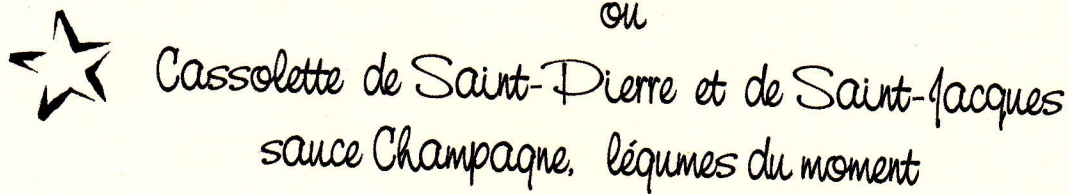 ou
Cassolette de Saint-Pierre et de Saint-Jacques
sauce Champagne, légumes du moment